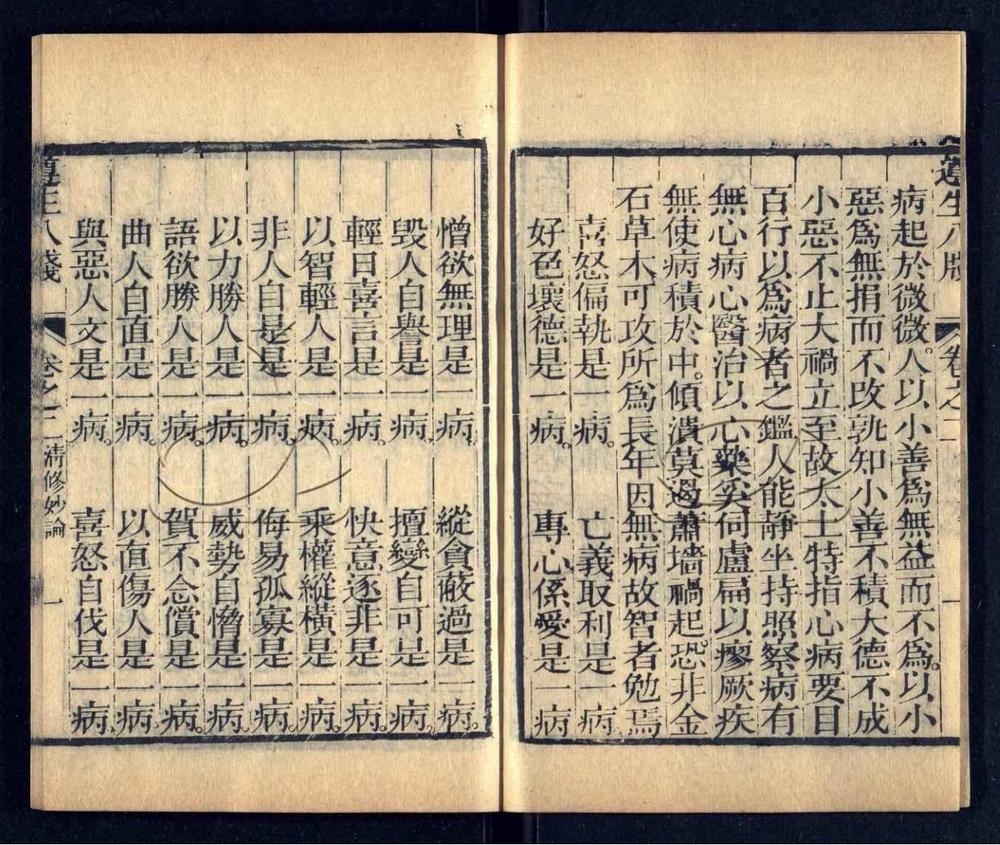 遵生八牋 卷之二 一
病起於微微。人以小善爲無益而不爲。以小
惡爲無損而不改孰知小善不積大德不成
小惡不止大禍立至故太上特指心病要目
百行以爲病者之鑑人能靜坐持照察病有
無心病心醫治以心藥奚伺盧扁以瘳厥疾
無使病積於中。傾潰莫遏蕭墻禍起。恐非金
石草木可攻所爲長年因無病故智者勉焉
喜怒偏執是一病。 亡義取利是一病
好色壞德是一病。 專心係愛是一病
憎欲無理是一病。 縱貪蔽過是一病。
毀人自譽是一病。 擅變自可是一病。
輕口喜言是一病。 快意逐非是一病。
以智輕人是一病。 乘權縱橫是一病。
非人自是是一病。 侮易孤寡是一病。
以力勝人是一病。 威勢自憎是一病。
語欲勝人是一病。 賀不念償是一病。
曲人自直是一病。 以直傷人是一病。
與惡人交是一病。 喜怒自伐是一病。
遵生八牋 卷之二 清修妙論 一